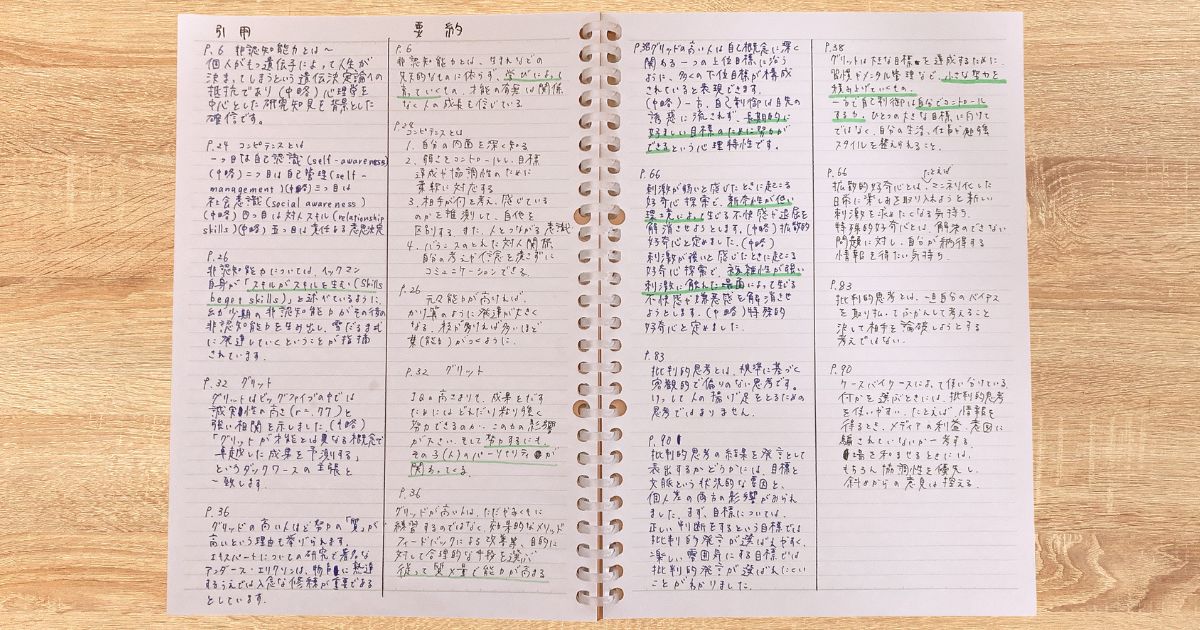 引用
P.6 非認知能力とは〜
個人がもつ遺伝子によって人生が
決まってしまうという遺伝決定論への
抵抗であり(中略)心理学を
中心とした研究知見を背景とした
確信です。
P.24 コンピテンスとは
一つ目は自己認識(self-awareness)
(中略)二つ目は自己管理(self-
management)(中略)三つ目は
社会意識(social awareness)
(中略)四つ目は対人スキル(relationship
skills)(中略)五つ目は責任ある意思決定
P.26
非認知能力については、ヘックマン
自身が「スキルがスキルを生む(Skills
beget skills)」と述べているように、
幼少期の非認知能力がその後の
非認知能力を生み出し、雪だるま式
に発達していくということが指摘
されています。
P.32 グリット
グリットはビッグファイブの中では
誠実性の高さ(r=.77)と
強い相関を示しました(中略)
「グリットが才能とは異なる概念で
卓越した成果を予測する」
というダックワースの主張と
一致します。
P.36
グリッドの高い人ほど努力の「質」が
高いという理由も挙げられます。
エキスパートについての研究で著名な
アンダース・エリクソンは、物事に熟達
するうえでは入念な修練が重要であると
としています。
要約
P.6
非認知能力とは、生まれなどの
先天的なものに依らず、学びによって
育っていくもの。才能の有無は関係
なく人の成長を信じている
P.24
コンピテンスとは
1. 自分の内面を深く知る
2. 頭をコントロールし、目標
達成や協調性のために
柔軟に対応する
3. 相手が何を考え、感じている
のかを推測して、自他を
区別する。また、人とつながる意識
4. バランスのとれた対人関係
自分の考えや信念を崩さずに
コミュニケーションできる。
P.26
元々能力が高ければ、
かけ算のように発達が大きく
なる。枝が多ければ多いほど
葉(能力)がつくように。
P.32 グリット
IQの高さより、成果をだす
ためにはどれだけ粘り強く
努力できるのか。この力の影響
が大きい。そして努力するにも、
その子(人)のパーソナリティが
関わってくる。
P.36
グリッドが高い人は、ただやみくもに
練習するのではなく、効果的なメソッド
フィードバックによる改善策、目的に
対して合理的な手段を選ぶ
従って質×量で能力が高まる
P.38 グリッドの高い人は自己概念に深く
関わる一つの上位目標に沿う
ように、多くの下位目標が構成
されていると表現できます。
(中略)一方、自己制御は目先の
誘惑に流されず、長期的に
好ましい目標のために努力が
できるという心理特性です。
P.66
刺激が弱いと感じたときに起こる
好奇心探索で、新奇性が低い
環境によって生じる不快感や退屈を
解消させようとします。(中略)拡散的
好奇心と定めました。(中略)
刺激が強いと感じたときに起こる
好奇心探索で、複雑性が強い
刺激に触れた場面によって生じる
不快感や嫌悪感を解消させ
ようとします。(中略)特殊的
好奇心と定めました。
P.83
批判的思考とは、規準に基づく
客観的で偏りのない思考です。
けっして人の揚げ足をとるための
思考ではありません。
P.90
批判的思考の結果を発言として
表出するかどうかには、目標と
文脈という状況的な要因と、
個人差の両方の影響がみられ
ました。まず、目標については、
正しい判断をするという目標では
批判的発言が選ばれやすく、
楽しい雰囲気にする目標では
批判的発言が選ばれにくい
ことがわかりました。
P.38
グリットは大きな目標を達成するために、
習慣やメンタル管理など、小さな努力を
積み上げていくもの。
一方で自己制御は自分でコントロール
する力。ひとつの大きな目標に向けて
ではなく、自分の生活、仕事や勉強
スタイルを整えられること。
P.66
たとえば
拡散的好奇心とは、マンネリ化した
日常に楽しみを取り入れようと新しい
刺激を求めたくなる気持ち。
特殊的好奇心とは、解決のできない
問題に対し、自分が納得する
情報を得たい気持ち。
P.83
批判的思考とは、一旦自分のバイアス
を取り払ってふかんして考えること
決して相手を論破しようとする
考えではない。
P.90
ケースバイケースによって使い分けている
何かを選ぶときには、批判的思考
を使いやすい。たとえば、情報を
得るとき、メディアの利益、意図に
騙されていないか考する。
場を和ませるときには、
もちろん協調性を優先し、
斜めからの意見は控える。